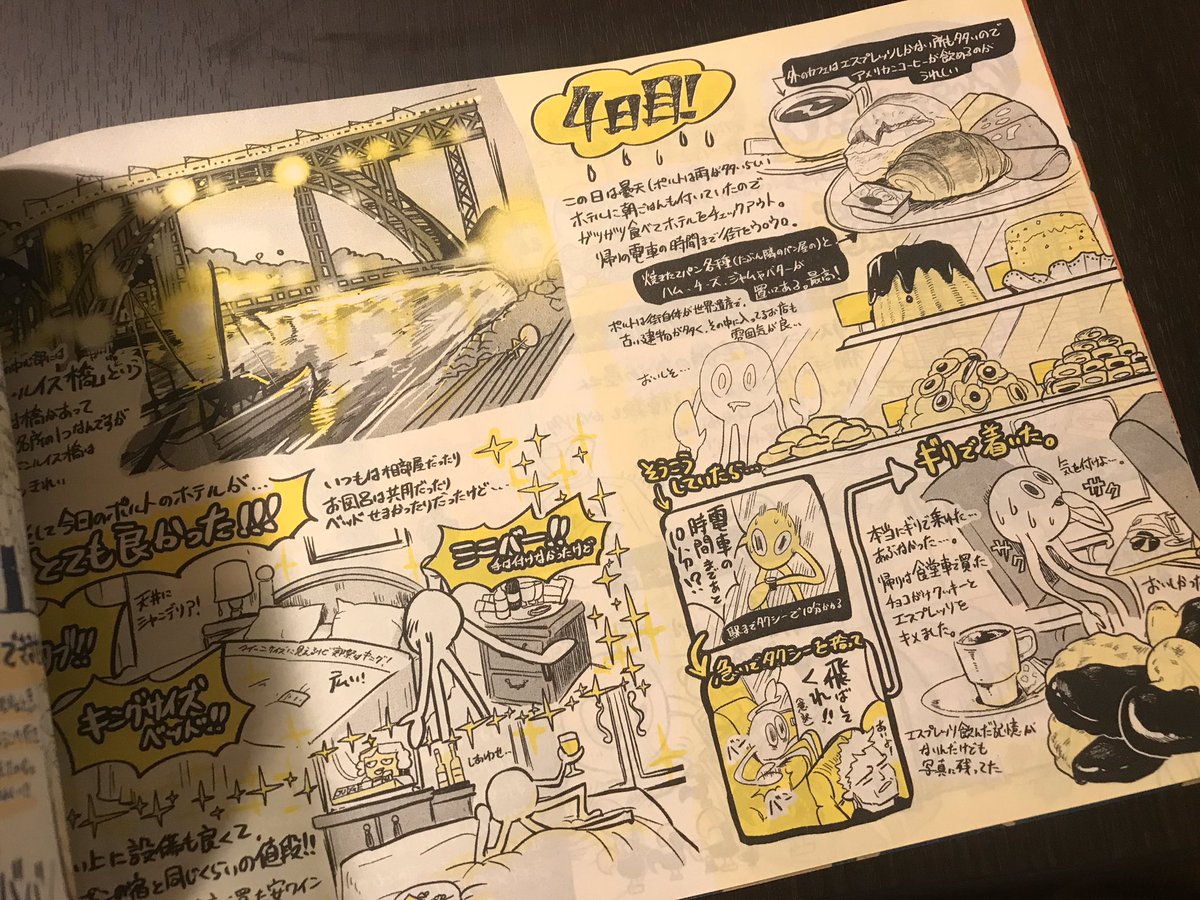 ルイス橋」という
橋があって
名所の1つなんですが
ルイス橋は
きれい
して今日のポルトのホテルが…
とても良かった!!!
いつもは相部屋だったり
お風呂は共用だったり
ベッドせまかったりだったけど…
ミニバー!!
手は付けなかったけど
天井に
シャンデリア!
キングサイズ
ベッド!!
広い!
しあわせ…
い上に設備も良くて、
宿と同じくらいの値段!!
安ワイン
4日目!
外のカフェはエスプレッソしかない所も多いので
アメリカンコーヒーが飲めるのが
うれしい
この日は曇天(ポルトは雨が多いらしい
ホテルに朝ごはんも付いていたので
ガツガツ食べてホテルをチェックアウト。
帰りの電車の時間まで街をウロウロ。
焼きたてパン各種(たぶん隣のパン屋の)と
ハム、チーズ、ジャムやバターが
置いてある。最高!!
ポルトは街自体が世界遺産で、
古い建物が多く、その中に入ってるお店も
雰囲気が良い
おいしそ…
そうこう
していたら…
電車の
時間まであと
10分!?
駅までタクシーで10分かかる
急いでタクシーを拾って
飛ばして
くれ!!
バン
バン
ギリで着いた。
気を付けよ…。
サク
サク
本当にギリで乗れた…
あぶねかった…。
帰りは食堂車で買った
チョコがけクッキーと
エスプレッソを
キメました。
おいしかった
エスプレッソ飲んだ記憶が
ないんだけども
写真に残ってた